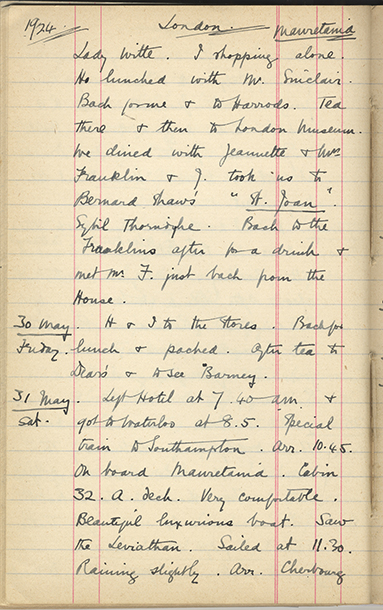 1924 London. Mauretania
Lady Witte. I shopping alone.
Ho lunched with Mr. Sinclair.
Back for me & to Harrods. Tea
there & then to London Museum.
We dined with Jeannette & Mrs
Franklin & J. took us to
Bernard Shaw's "St. Joan".
Sybil Thorndyke. Back to the
Franklins after for a drink &
met Mr. F. just back from the
House.
30 May. H & I to the Stores. Back for
Friday. lunch & packed. After tea to
& to see Barney.
31 May. Left Hotel at 7.40 am &
Sat. got to Waterloo at 8.5. Special
train to Southampton. Arr. 10.45.
On board Mauretania. Cabin
32. A. Deck. Very comfortable.
Beautiful luxurious boat. Saw
the Leviathan. Sailed at 11.30.
Raining slightly. Arr. Cherbourg